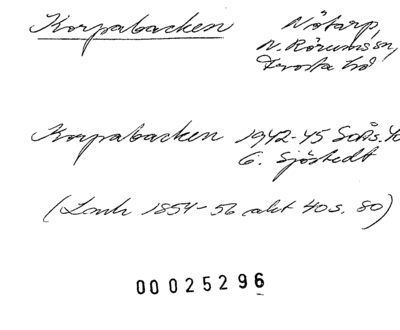 Korpabacken
Nötarp,
N. Rörums sn,
Frosta hd
Korpabacken 1942-45 SOÅs.
G. Sjöstedt
(Lantm 1854-56 akt 40 s. 80)
00025296